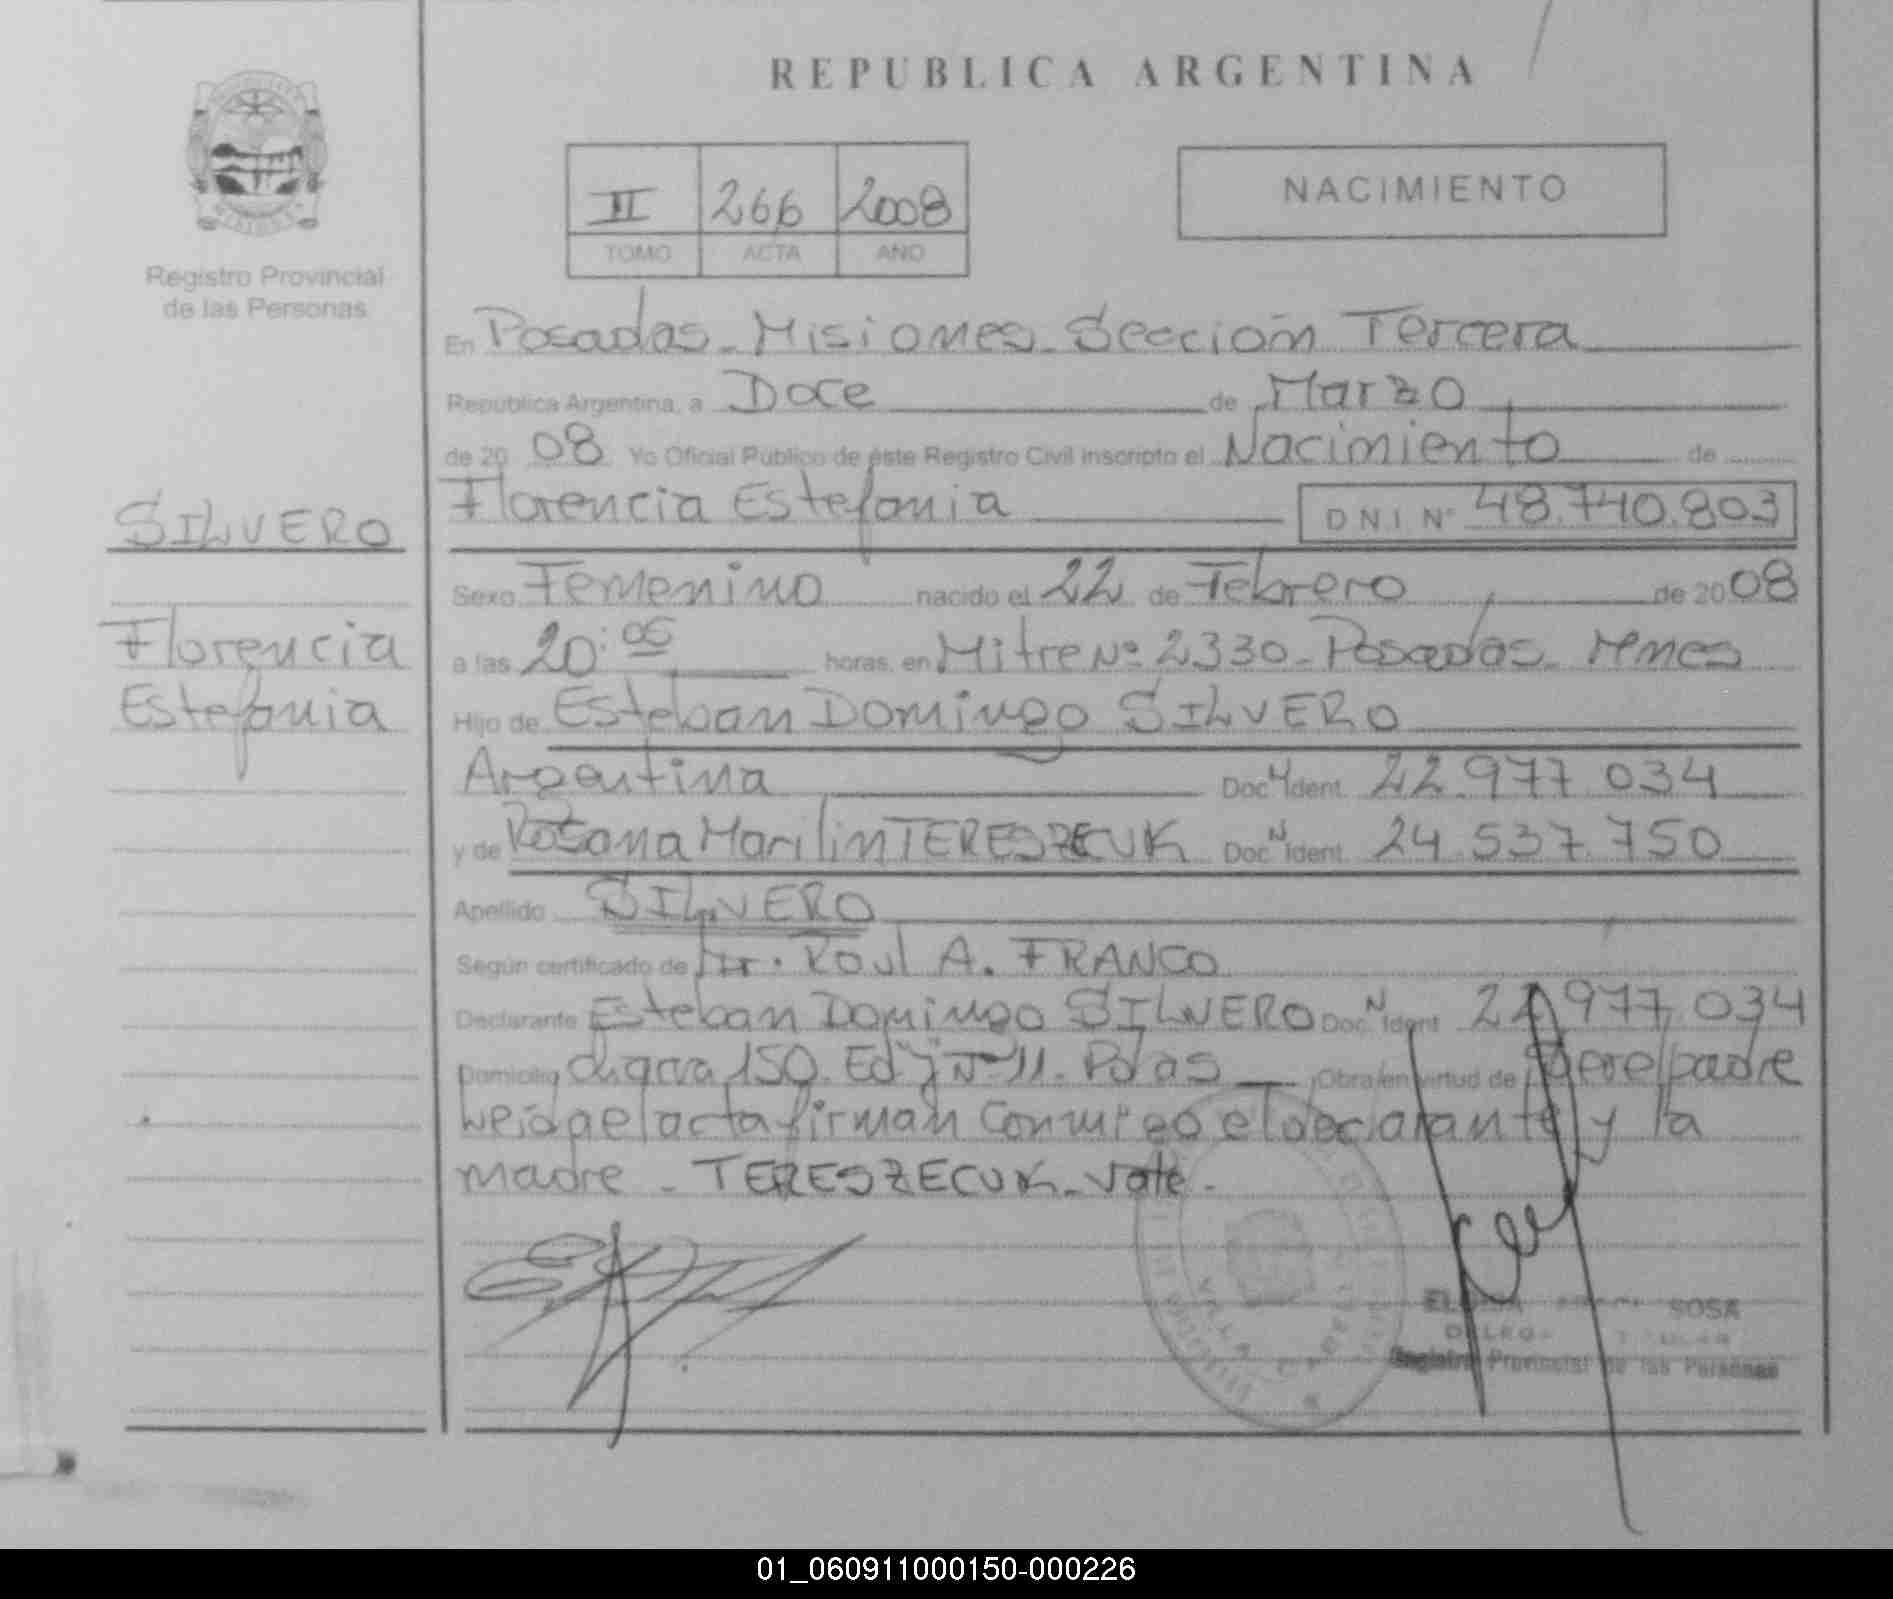 REPUBLICA ARGENTINA
II 266 2008
TOMO ACTA AÑO
NACIMIENTO
Registro Provincial
de las Personas
SILVERO
Florencia
Estefania
En Posadas - Misiones - Sección Tercera
República Argentina, a Doce de Marzo
de 20 08 Yo Oficial Público de éste Registro Civil inscripto el Nacimiento de
Florencia Estefania DNI Nº 48.740.803
Sexo Femenino nacido el 22 de Febrero de 20 08
a las 20:06 horas, en Mitre Nº 2330 - Posadas - Mnes
Hijo de Esteban Domingo SILVERO
Argentina Doc. N Ident. 22.977.034
y de Rosana Marilin TERESZECUK Doc. N Ident. 24.537.750
Apellido SILVERO
Según certificado de Dr. Raul A. FRANCO
Declarante Esteban Domingo SILVERO Doc. N Ident. 22.977.034
Domicilio chacra 150. Ed "J" Nº 11. Pdas Obra en virtud de ser el padre
Leida el acta firman conmigo el declarante y la
madre - TERESZECUK - Vale -
SOSA
Registro Provincial de las Personas
01_060911000150-000226